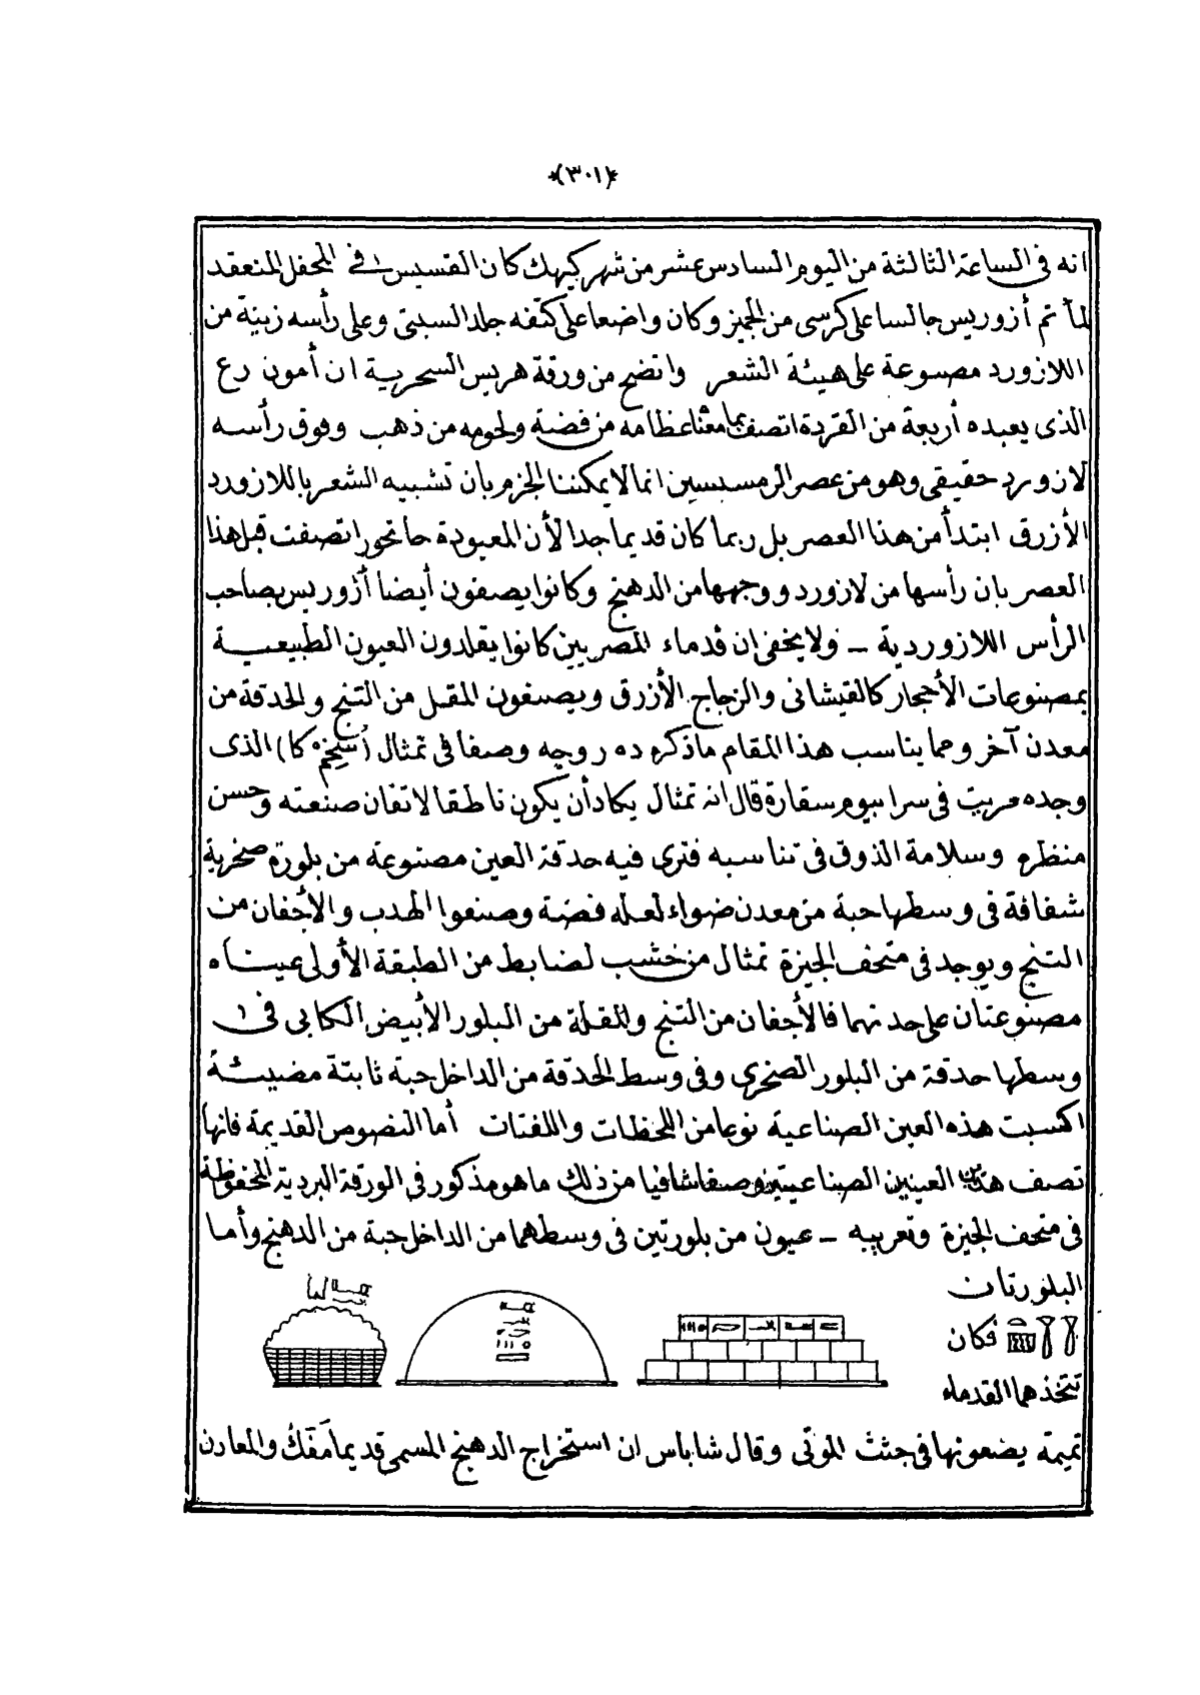 *(٣٠١)*
انه فى الساعة الثالثة من اليوم السادس عشر من شهر كيهك كان القسيس فى المحفل المنعقد
لمأتم أزوريس جالسا على كرسى من الجميز وكان واضعا على كتفه جلد السبنتى وعلى رأسه زينة من
اللازورد مصنوعة على هيئة الشعر واتضح من ورقة هريس السحرية ان أمون رع
الذى يعبده أربعة من القردة اتصف بما معناه عظامه من فضة ولحومه من ذهب وفوق رأسه
لازورد حقيقى وهو من عصر الرمسيسين انما لا يمكننا الجزم بان تشبيه الشعر باللازورد
الأزرق ابتدأ من هذا العصر بل ربما كان قديما جدا لأن المعبودة حاتحور اتصفت قبل هذا
العصر بان رأسها من لازورد ووجهها من الدهنج وكانوا يصفون أيضا أزوريس بصاحب
الرأس اللازوردية ـ ولا يخفى ان قدماء المصريين كانوا يقلدون العيون الطبيعية
بمصنوعات الأحجار كالقيشانى والزجاج الأزرق ويصنعون المقل من التنج والحدقة من
معدن آخر ومما يناسب هذا المقام ما ذكره ده روجه وصفا فى تمثال (سخم كا) الذى
وجده مريت فى سرابيوم سقارة قال انه تمثال يكاد أن يكون ناطقا لاتقان صنعته وحسن
منظره وسلامة الذوق فى تناسبه فترى فيه حدقة العين مصنوعة من بلورة صخرية
شفافة فى وسطها حبة من معدن ضواء لعله فضة وصنعوا الهدب والأجفان من
التنج ويوجد فى متحف الجيزة تمثال من خشب لضابط من الطبقة الأولى عيناه
مصنوعتان على حدتهما فالأجفان من التنج والمقلة من البلور الأبيض الكابى فى
وسطها حدقة من البلور الصخرى وفى وسط الحدقة من الداخل حبة ثابتة مضيئة
اكسبت هذه العين الصناعية نوعا من اللحظات واللفتات أما النصوص القديمة فانها
تصف هتان العينين الصناعيتين وصفا شافيا من ذلك ما هو مذكور فى الورقة البردية المحفوظة
فى متحف الجيزة وتعريبه ـ عيون من بلورتين فى وسطهما من الداخل حبة من الدهنج وأما
البلورتان
فكان
تتخذهما القدماء
تميمة يضعونها فى جثث الموتى وقال شاباس ان استخراج الدهنج المسمى قديما مَفَكْ والمعادن